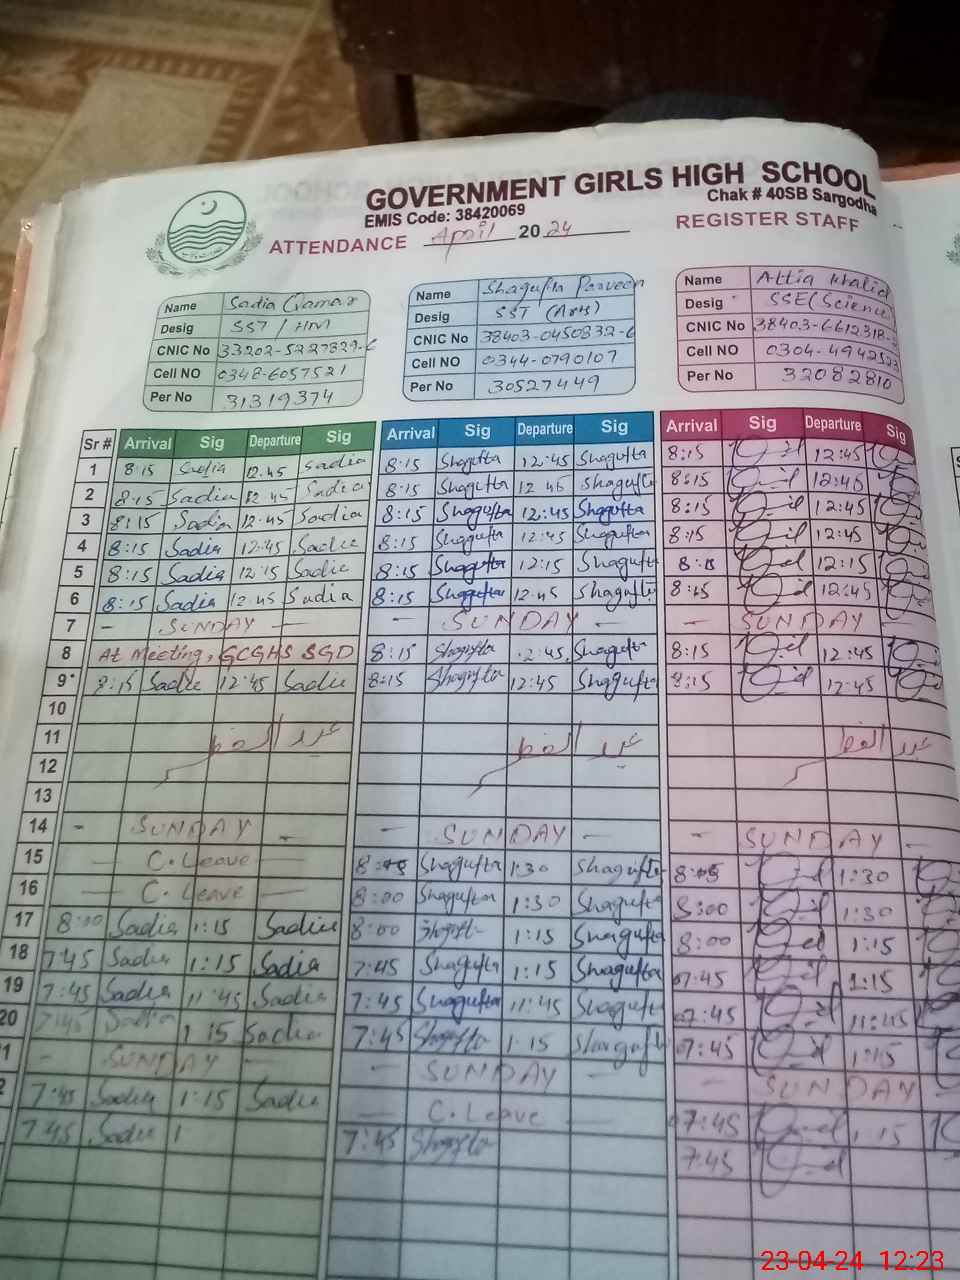 GOVERNMENT GIRLS HIGH SCHOOL
EMIS Code: 38420069 Chak # 40SB Sargodha
ATTENDANCE April 2024 REGISTER STAFF
Name Sadia Qamar
Desig SST / HM
CNIC No 33202-5227829-6
Cell NO 0348-6057521
Per No 31319374
Name Shagufta Parveen
Desig SST (Arts)
CNIC No 38403-0450832-6
Cell NO 0344-0790107
Per No 30527449
Name Attia Khalid
Desig SSE (Science)
CNIC No 38403-6612318-
Cell NO 0304-4942523
Per No 32082810
Sr # Arrival Sig Departure Sig Arrival Sig Departure Sig Arrival Sig Departure Sig
1 8:15 Sadia 12:45 Sadia 8:15 Shagufta 12:45 Shagufta 8:15 12:45
2 8:15 Sadia 12 45 Sadia 8:15 Shagufta 12 45 Shagufta 8:15 12:45
3 8:15 Sadia 12:45 Sadia 8:15 Shagufta 12:45 Shagufta 8:15 12:45
4 8:15 Sadia 12:45 Sadia 8:15 Shagufta 12:45 Shagufta 8:15 12:45
5 8:15 Sadia 12:15 Sadia 8:15 Shagufta 12:15 Shagufta 8:15 12:15
6 8:15 Sadia 12:45 Sadia 8:15 Shagufta 12:45 Shagufta 8:15 12:45
7 - SUNDAY - - SUNDAY - - SUNDAY
8 At Meeting, GCGHS SGD 8:15 Shagufta 2:45 Shagufta 8:15 12:45
9 8:15 Sadia 12:45 Sadia 8:15 Shagufta 12:45 Shagufta 8:15 12:45
10
11 عید الفطر عید الفطر عید الفطر
12
13
14 - SUNDAY - - SUNDAY - - SUNDAY -
15 - C. Leave - Shagufta 1:30 Shagufta 1:30
16 - C. Leave - 8:00 Shagufta 1:30 Shagufta 8:00 1:30
17 8:00 Sadia 1:15 Sadia 8:00 Shagufta 1:15 Shagufta 8:00 1:15
18 7:45 Sadia 1:15 Sadia 7:45 Shagufta 1:15 Shagufta 07:45 1:15
19 7:45 Sadia 11:45 Sadia 7:45 Shagufta 11:45 Shagufta 07:45 11:45
20 7:45 Sadia 1 15 Sadia 7:45 Shagufta 1:15 Shagufta 07:45 1:15
1 - SUNDAY - - SUNDAY - - SUNDAY
2 7:45 Sadia 1:15 Sadia - C. Leave - 07:45 1:15
7:45 Sadia 1 7:45 Shagufta 7:45
23-04-24 12:23